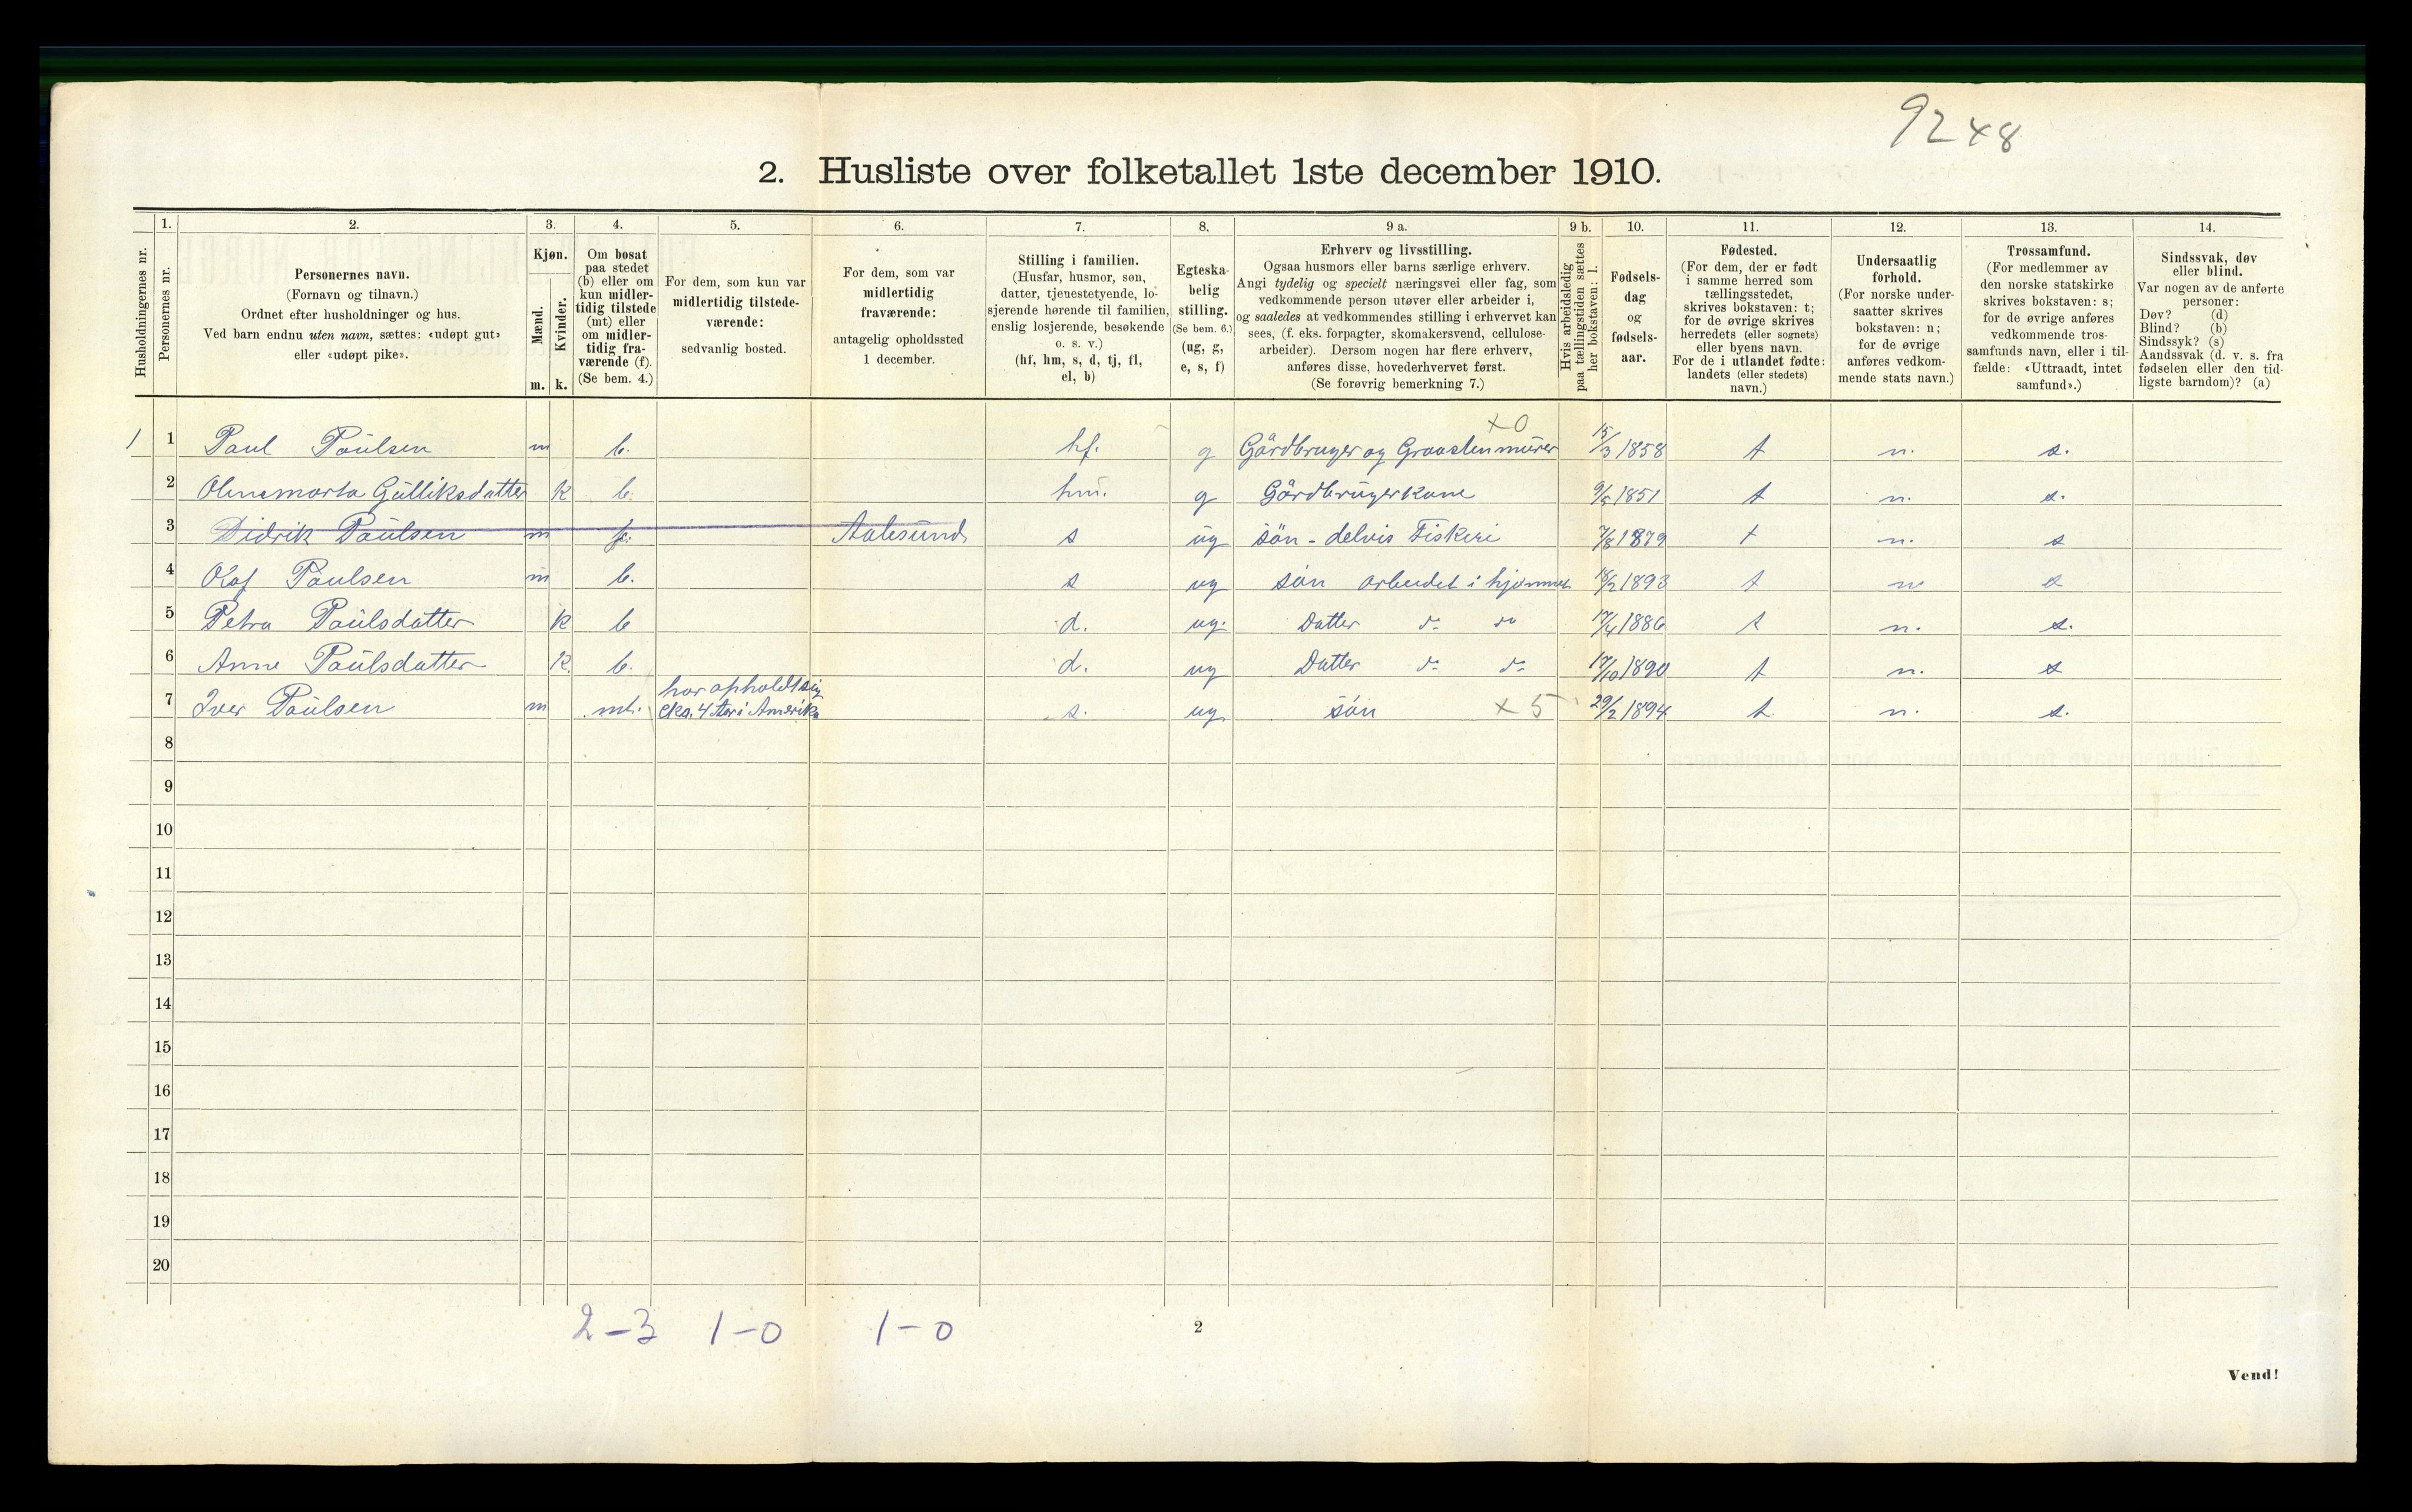 9248
2. Husliste over folketallet 1ste december 1910.
Husholdningernes nr.
1.
Personernes nr.
2.
Personernes navn.
(Fornavn og tilnavn.)
Ordnet efter husholdninger og hus.
Ved barn endnu uten navn, sættes: «udøpt gut»
eller «udøpt pike».
3.
Kjøn.
Mænd.
Kvinder.
m. k.
4.
Om bosat
paa stedet
(b) eller om
kun midler-
tidig tilstede
(mt) eller
om midler-
tidig fra-
værende (f).
(Se bem. 4.)
5.
For dem, som kun var
midlertidig tilstede-
værende:
sedvanlig bosted.
6.
For dem, som var
midlertidig
fraværende:
antagelig opholdssted
1 december.
7.
Stilling i familien.
(Husfar, husmor, søn,
datter, tjenestetyende, lo-
sjerende hørende til familien,
enslig losjerende, besøkende
o. s. v.)
(hf, hm, s, d, tj, fl,
el, b)
8.
Egteska-
belig
stilling.
(Se bem. 6.)
(ug, g,
e, s, f)
9 a.
Erhverv og livsstilling.
Ogsaa husmors eller barns særlige erhverv.
Angi tydelig og specielt næringsvei eller fag, som
vedkommende person utøver eller arbeider i,
og saaledes at vedkommendes stilling i erhvervet kan
sees, (f. eks. forpagter, skomakersvend, cellulose-
arbeider). Dersom nogen har flere erhverv,
anføres disse, hovederhvervet først.
(Se forøvrig bemerkning 7.)
9 b.
Hvis arbeidsledig
paa tællingstiden sættes
her bokstaven: l.
10.
Fødsels-
dag
og
fødsels-
aar.
11.
Fødested.
(For dem, der er født
i samme herred som
tællingsstedet,
skrives bokstaven: t;
for de øvrige skrives
herredets (eller sognets)
eller byens navn.
For de i utlandet fødte:
landets (eller stedets)
navn.)
12.
Undersaatlig
forhold.
(For norske under-
saatter skrives
bokstaven: n;
for de øvrige
anføres vedkom-
mende stats navn.)
13.
Trossamfund.
(For medlemmer av
den norske statskirke
skrives bokstaven: s;
for de øvrige anføres
vedkommende tros-
samfunds navn, eller i til-
fælde: «Uttraadt, intet
samfund».)
14.
Sindssvak, døv
eller blind.
Var nogen av de anførte
personer:
Døv? (d)
Blind? (b)
Sindssyk? (s)
Aandssvak (d. v. s. fra
fødselen eller den tid-
ligste barndom)? (a)
x0
1 1 Paul Paulsen m b. hf. g Gårdbruger og Graastenmurer 15/3 1858 t n. s.
2 Olinemarta Gulliksdatter k b. hm. g Gårdbrugerkone 9/5 1851 t n. s.
3 Didrik Paulsen m f. Aalesund s ug søn - delvis Fiskeri 7/8 1879 t n. s
4 Olaf Paulsen m b. s ug søn arbeidet i hjemmet 18/2 1893 t n s
5 Petra Paulsdatter k b d. ug. Datter do do 17/4 1886 t n. s.
6 Anne Paulsdatter k. b. d. ug Datter do do 17/10 1890 t n. s
7 Iver Paulsen m mt. har opholdt sig
cka. 4 Aar i Amerika s. ug søn x 5 29/2 1894 t n. s.
8
9
10
11
12
13
14
15
16
17
18
19
20
2-3 1-0 1-0
2
Vend!